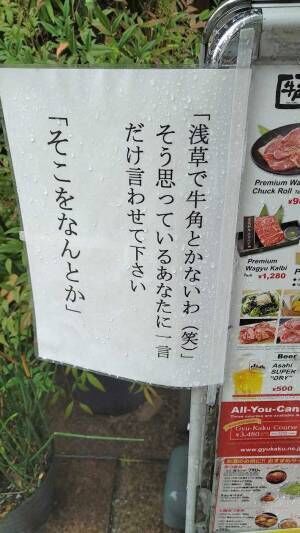 「浅草で牛角とかないわ（笑）」
そう思っているあなたに一言
だけ言わせて下さい
「そこをなんとか」
牛
Premium Wa
Chuck Roll
Premium
Wagyu Kalbi
¥1,280
Beer
Asahi
SUPER
"DRY"
¥500
All-You-Can
Gyu-Kaku Course
¥3,480
www.gyukaku.ne.j